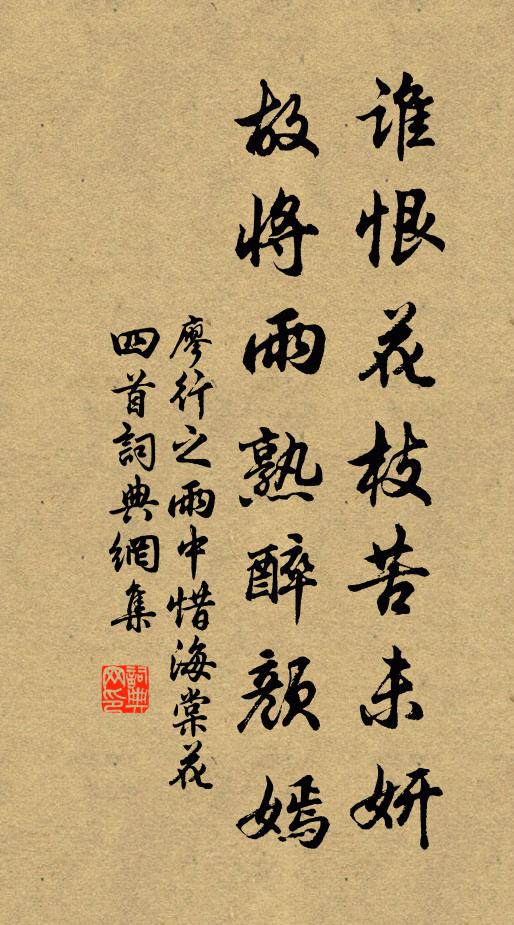 誰恨花枝苦未妍
故將雨熟醉顏嫣
廖行之雨中惜海棠花
四首詞典網集
詞典网印